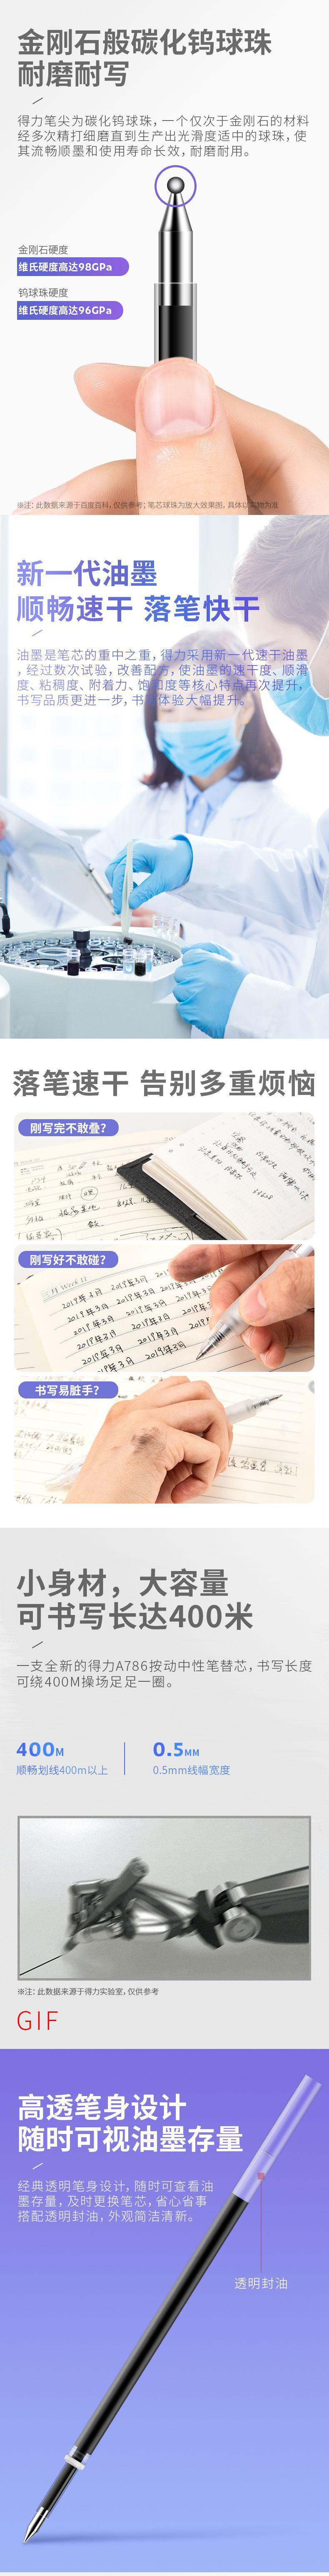 金刚石般碳化钨球珠
耐磨耐写
得力笔尖为碳化钨球珠，一个仅次于金刚石的材料
经多次精打细磨直到生产出光滑度适中的球珠，使
其流畅顺墨和使用寿命长效，耐磨耐用。
金刚石硬度
维氏硬度高达98GPa
钨球珠硬度
维氏硬度高达96GPa
※注：此数据来源于百度百科，仅供参考；笔芯球珠为放大效果图，具体以实物为准
新一代油墨
顺畅速干 落笔快干
油墨是笔芯的重中之重，得力采用新一代速干油墨
，经过数次试验，改善配方，使油墨的速干度、顺滑
度、粘稠度、附着力、饱和度等核心特点再次提升，
书写品质更进一步，书写体验大幅提升。
落笔速干 告别多重烦恼
刚写完不敢叠？
刚写好不敢碰？
Week 11
2019年3月 2019年3月
书写易脏手？
小身材，大容量
可书写长达400米
一支全新的得力A786按动中性笔替芯，书写长度
可绕400M操场足足一圈。
400M
0.5MM
顺畅划线400m以上
0.5mm线幅宽度
※注：此数据来源于得力实验室，仅供参考
GIF
高透笔身设计
随时可视油墨存量
经典透明笔身设计，随时可查看油
墨存量，及时更换笔芯，省心省事
搭配透明封油，外观简洁清新。
透明封油